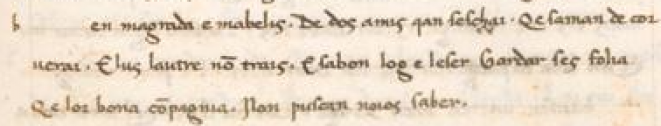 b en magrada e mabelis. De dos amis qan seschai. Qe saman de cor
uerai. E lus lautre nō trais. E sabon log e leser Gardar ses folia
Qe lor bona cōpagnia. Non puscan noios saber.